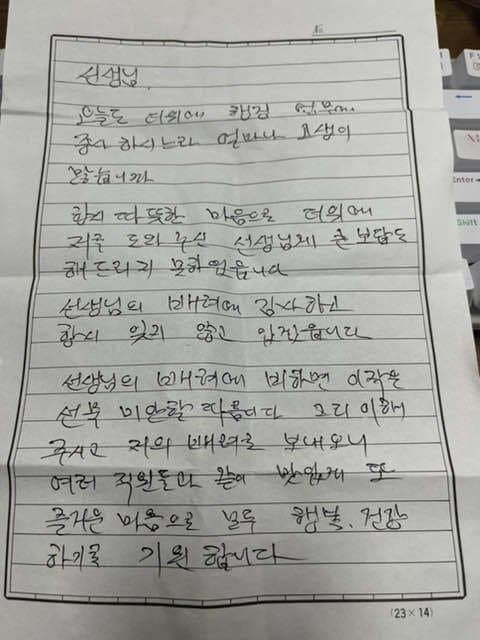 No
선생님.
오늘도 더위에 행정 업무에
종사 하시느라 얼마나 고생이
많습니까
항시 따뜻한 마음으로 더위에
저를 도와 주신 선생님께 큰 보답도
해 드리지 못하였읍니다
선생님의 배려에 감사하고
항시 잊지 않고 있겠읍니다
선생님의 배려에 비하면 이작은
선물 미안할 따름니다 그리 이해
주시고 저의 배려를 보내오니
여러 직원들과 같이 맛있게 또
즐거운 마음으로 모두 행복. 건강
하기를 기원 합니다
(23×14)
Enter
Shift